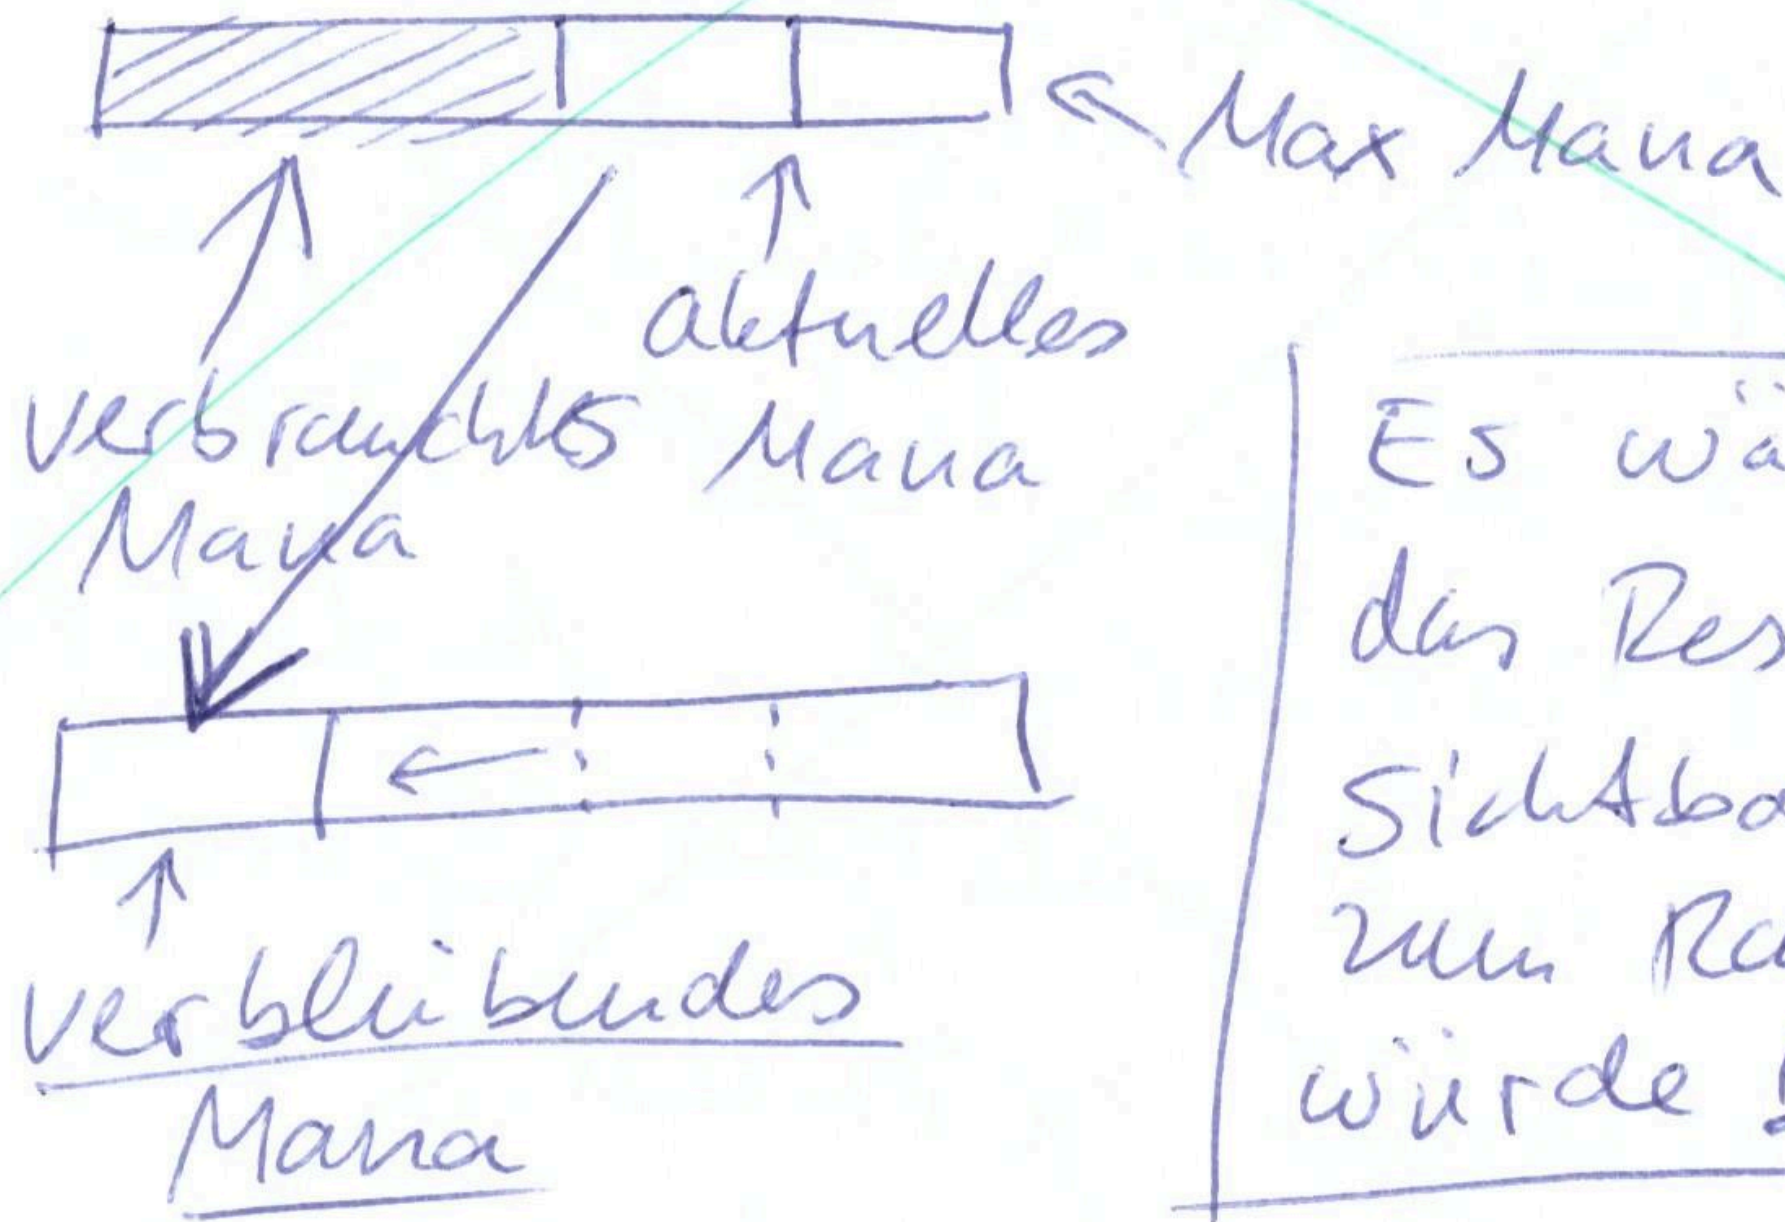 Max Mana
aktuelles
Mana
verbrauchtes
Mana
verbleibendes
Mana
Es wä
das Res
Sichtba
zum Ra
würde